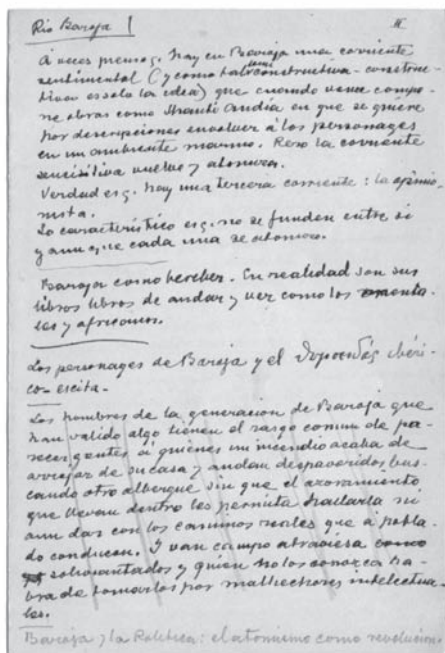 Pío Baroja II
A veces pienso q. hay en Baroja una corriente
sentimental (y como tal semiconstructiva – construc-
tiva es solo la idea) que cuando vence compo-
ne obras como Shanti Andía en que se quiere
por descripciones envolver á los personages
en un ambiente marino. Pero la corriente
sensitiva vuelve y atomiza.
Verdad es q. hay una tercera corriente: la opinio-
nista.
Lo característico es q. no se funden entre sí
y aun que cada una se atomiza.
Baroja como bereber. En realidad son sus
libros libros de andar y ver como los orienta-
les y africanos.
Los personages de Baroja y el ibéri-
co-escita-
Los hombres de la generación de Baroja que
han valido algo tienen el rasgo comun de pa-
recer gentes á quienes un incendio acaba de
arrojar de su casa y andan despavoridos bus-
cando otro albergue sin que el azoramiento
que llevan dentro les permita hallarla ni
aun dar con los caminos reales que á pobla-
do conducen. Y van campo atraviesa como
soliviantados y quien no los conozca ha-
bra de tomarlos por malhechores intelectua-
les.
Baroja y la Política: el atomismo como revolucion